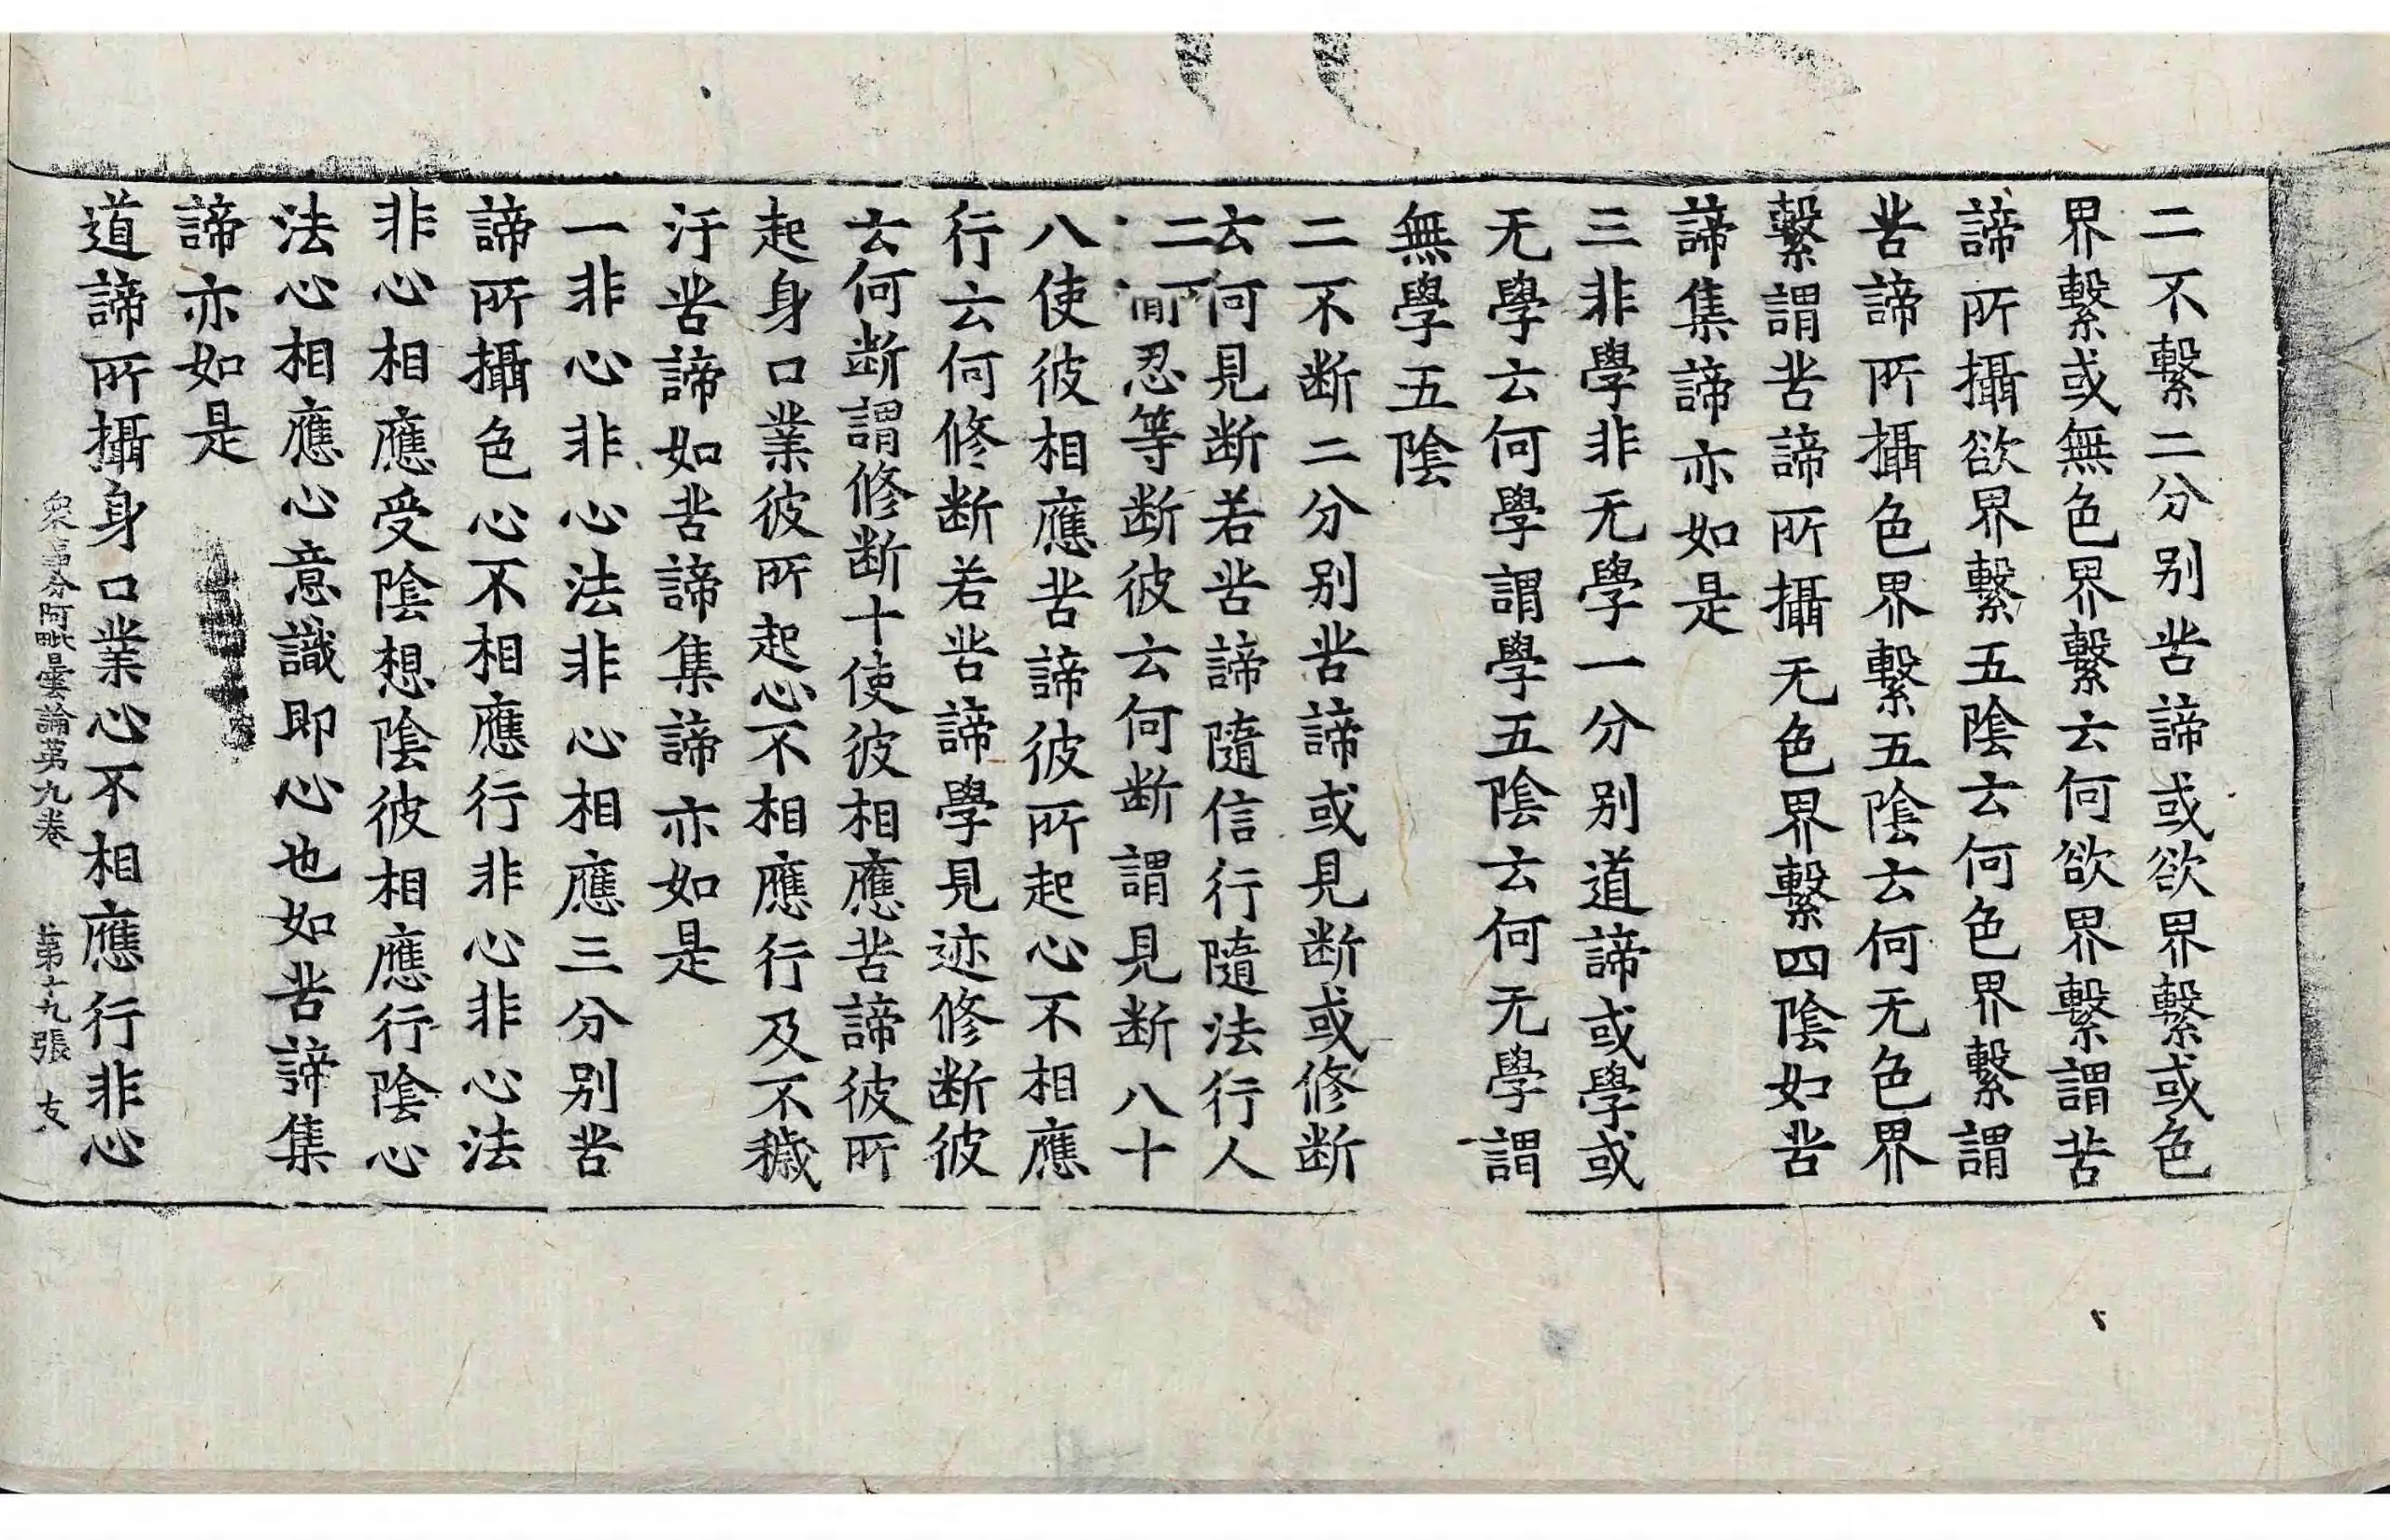 二不繫二分别苦諦或欲界繫或色
界繫或無色界繫云何欲界繫謂苦
諦所攝欲界繫五陰云何色界繫謂
苦諦所攝色界繫五陰云何无色界
繫謂苦諦所攝无色界繫四陰如苦
諦集諦亦如是
三非學非无學一分别道諦或學或
无學云何學謂學五陰云何无學謂
無學五陰
二不断二分别苦諦或見断或修断
云何見断若苦諦隨信行隨法行人
忍等断彼云何断謂見断八十
八使彼相應苦諦彼所起心不相應
行云何修断若苦諦學見迹修断彼
云何断謂修断十使彼相應苦諦彼所
起身口業彼所起心不相應行及不穢
汙苦諦如苦諦集諦亦如是
一非心非心法非心相應三分别苦
諦所攝色心不相應行非心非心法
非心相應受陰想陰彼相應行陰心
法心相應心意識即心也如苦諦集
諦亦如是
道諦所攝身口業心不相應行非心
衆事分阿毗曇論第九卷 第十九張 友